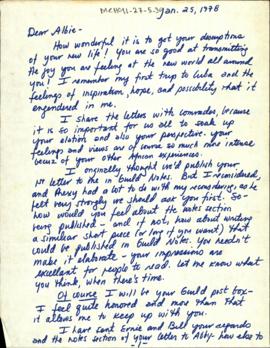 MCH91-27-5-39
Jan. 25, 1978
Dear Albie-
How wonderful it is to get your descriptions
of your new life! You are so good at transmitting
the joy you are feeling at the new world all around
you! I remember my first trip to Cuba and the
feelings of inspiration, hope, and possibility that it
engendered in me.
I share the letters with comrades, because
it is so important for us all to soak up
your elation and also your perspective. Your
feelings and views are of course so much more intense
becuz of your other African experiences.
I originally thought we'd publish your
1st letter to me in Guild Notes. But I reconsidered,
and Abby had a lot to do with my reconsidering, as he
felt very strongly we should ask you first. So-
how would you feel about the notes section
being published - and if not, how about writing
a similar short piece (or long if you want) that
could be published in Guild Notes. You needn't
make it elaborate - your impressions are
excellent for people to read. Let me know what
you think, when there's time.
Of course I will be your Guild post box-
I feel quite honored and more than that
it allows me to keep up with you.
I have sent Ernie and Bill your regards
and the notes section of your letter to Abby- how else to